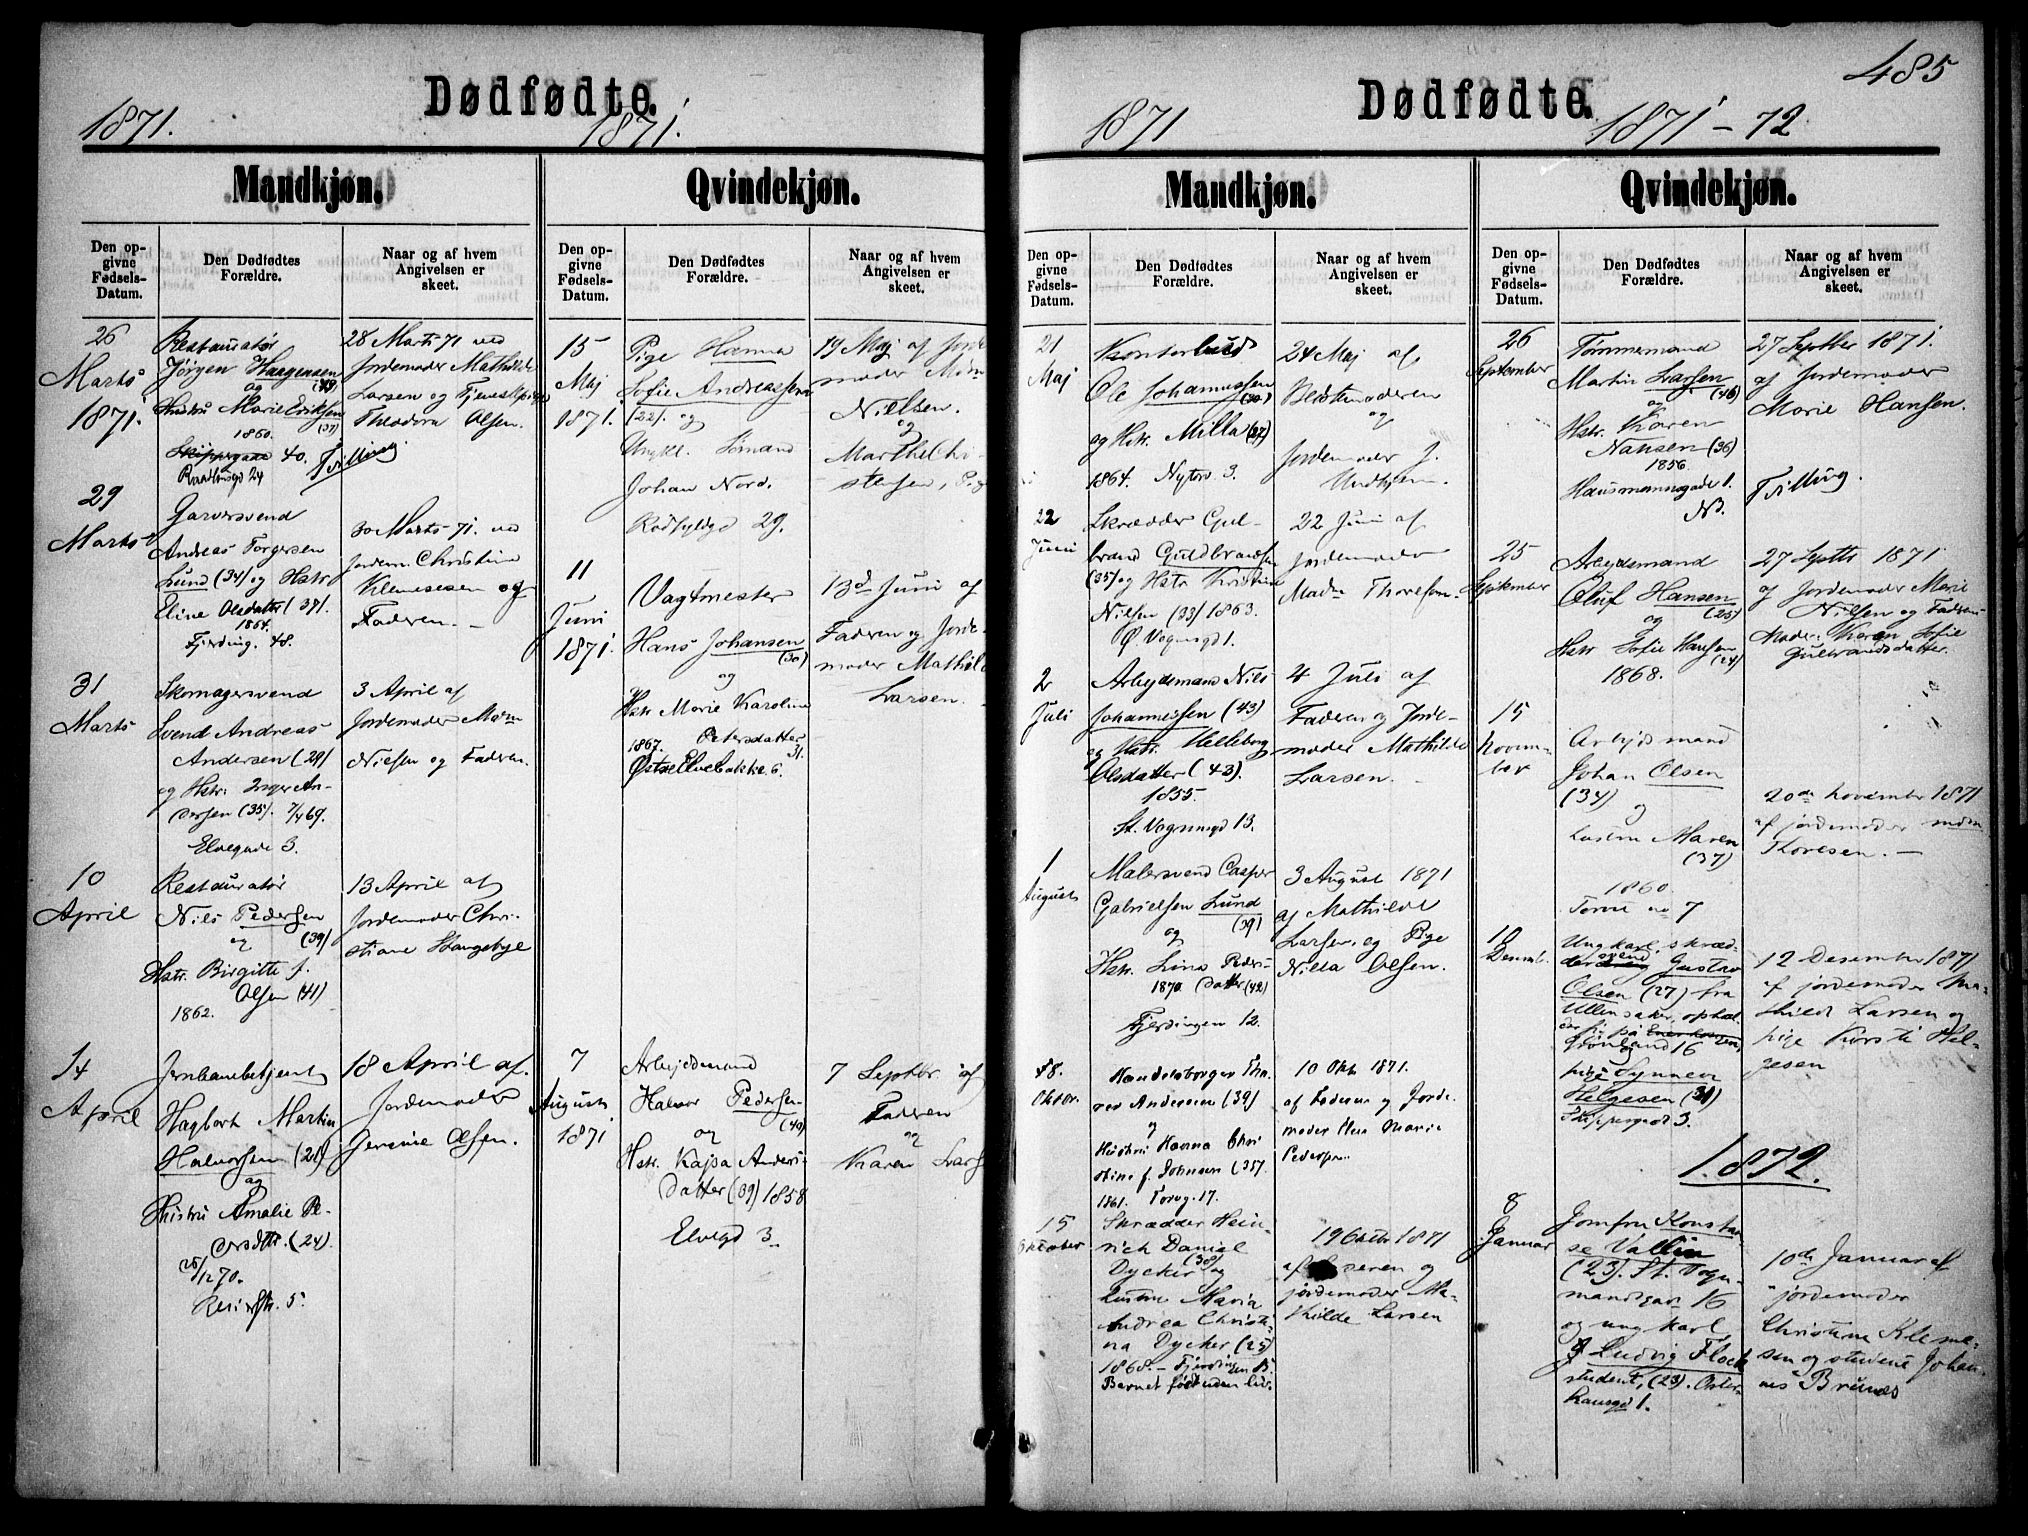 Dødfødte.
1871.
1871.
Mandkjøn.
Den op-
givne
Fødsels-
Datum.
Den Dødfødtes
Forældre.
Naar og af hvem
Angivelsen er
skeet.
26
Marts
1871.
Restauratør
Jørgen Haagensen
og
Hustru Marie Eriksen
1860. (37)
Skippergade 40.
Raadhusgd 24
Tvilling
28 Marts 71 ved
Jordemoder Mathilde
Larsen og Tjenestpige
Theodora Olsen.
29
Marts
Garversvend
Andreas Torgersen
Lund (34) og Hstr.
Eline Olsdatter (37).
1864.
Fjerding. 48.
30 Marts 71. ved
Jordem. Christine
Klemesen og
Faderen.
31
Marts
Skomagersvend
Svend Andreas
Andersen (29)
og Hstr. Inger An-
dersen (35). 7/4 69.
Elvegade 3.
3 April af
Jordemoder
Nielsen og Faderen.
10
April
Restauratør
Nils Pedersen
og (39)
Hstr. Birgitte f.
Olsen (41)
1862.
13 April af
Jordemoder Chri-
stiane Haugebye
14
April
Jernbanebetjent
Hagbart Martin
Halvorsen (21)
og
Hustru Amalie Pe-
dersdttr. (24)
26/12 70.
18 April af
Jordemoder
Olsen.
Qvindekjøn.
Den op-
givne
Fødsels-
Datum.
Den Dødfødtes
Forældre.
Naar og af hvem
Angivelsen er
skeet.
15
Maj
1871.
Pige Hanna
Sofie Andreassen
(22). og
Ungkl. Sømand
Johan Nord.
Rødfyldgd 29.
19 Maj af Jorde
moder
Nielsen.
og
Marthe Chri-
stensen,
11
Juni
1871.
Vagtmester
Hans Johansen
(30)
og
Hstr Marie Karoline
1867. Petersdatter
31.
Østre Elvebakke 6.
13d Juni af
Faderen og Jorde-
moder Mathild
Larsen.
7
August
1871
Arbejdsmand
Halvor Pedersen
(40)
og
Hstr. Kajsa Anders-
datter (39) 1858
Elvegd 3.
7 Septbr. af
Faderen
og
Karen Lars
Dødfødte.
485
1871
1871-72
Mandkjøn.
Den op-
givne
Fødsels-
Datum.
Den Dødfødtes
Forældre.
Naar og af hvem
Angivelsen er
skeet.
21
Maj
Kontorbud
Ole Johannessen
(30)
og Hstr. Milla (27)
1864. Nytorv 3.
24 Maj af
Bedstemoderen
og
Jordemoder J.
22
Juni
Skrædder Gul-
brand Guldbrandsen
(35) og Hstr Kristine
Nilsen (33) 1863.
Ø. Vognmgd 1.
22 Juni af
Jordemoder
Mad. Thoresen.
2
Juli
Arbejdsmand Nils
Johannesen (43)
og Hstr. Helleborg
Olsdatter (43).
1855.
St. Vognmgd 13.
4 Juli af
Faderen og Jorde-
moder Mathilde
Larsen.
1
August
Malersvend Casper
Gabrielsen Lund
(39)
og
Hstr. Lina Peders-
1870. datter (42)
Fjerdingen 12.
3 August 1871
af Mathilde
Larsen og Pige
Nilla Olsen.
8.
Oktbr.
Handelsborger Tho-
red Andersen (39)
og
Hustru Hanna Chri-
stine f. Johnsen (35).
1861. Torvg. 17.
10 Oktb. 1871.
af Faderen og Jorde-
moder Else Marie
Pedersen
15
Oktober
Skrædder Hein-
rich Daniel
Dycker (30) og
hustru Maria
Andrea Christi-
na Dycker (25)
1868. - Fjerdingen
Barnet født uden liv.
19 Oktbr 1871
af faderen og
jordemoder Ma-
thilde Larsen
Qvindekjøn.
Den op-
givne
Fødsels-
Datum.
Den Dødfødtes
Forældre.
Naar og af hvem
Angivelsen er
skeet.
26
September
Tømmermand
Martin Larsen
og (46)
Hstr. Karen
Nansen (36)
1856.
Hausmannsgade 1.
27 Septber 1871.
af Jordemoder
Marie Hansen.
Tvilling.
25
September
Arbejdsmand
Oluf Hansen
(25)
og
Hstr. Sofie Hansen
(24)
1868.
27 Septbr 1871
af Jordemoder Marie
Nilsen og Faderens
Moder: Karen Sofie
Gulbrandsdatter.
15
Novem-
ber
Arbejdsmand
Johan Olsen
(34)
og
hustru Maren
(37)
1860.
Torve no 7
20de november 1871
af jordemoder madm
Thoresen. -
10
Decemb.
Ungkarl, skræd-
dersvend Gustav
Olsen (27) fra
Ullensaker, ophol-
der sig på
Grønland 16
og
pige Synnøve
Helgesen (30)
Skippergad 3.
12 Desember 1871
af jordemoder Ma-
thilde Larsen og
pige Kirsti Hel-
gesen
1872.
8
Januar
Jomfru Konstan-
se Vallin
(23). St. Vogn-
mandsgar 16
og ungkarl
Ludvig Flock
student, (23).
10de Januar af
jordemoder
Christine Kleme-
sen og studenti Johan-
nes Bruns